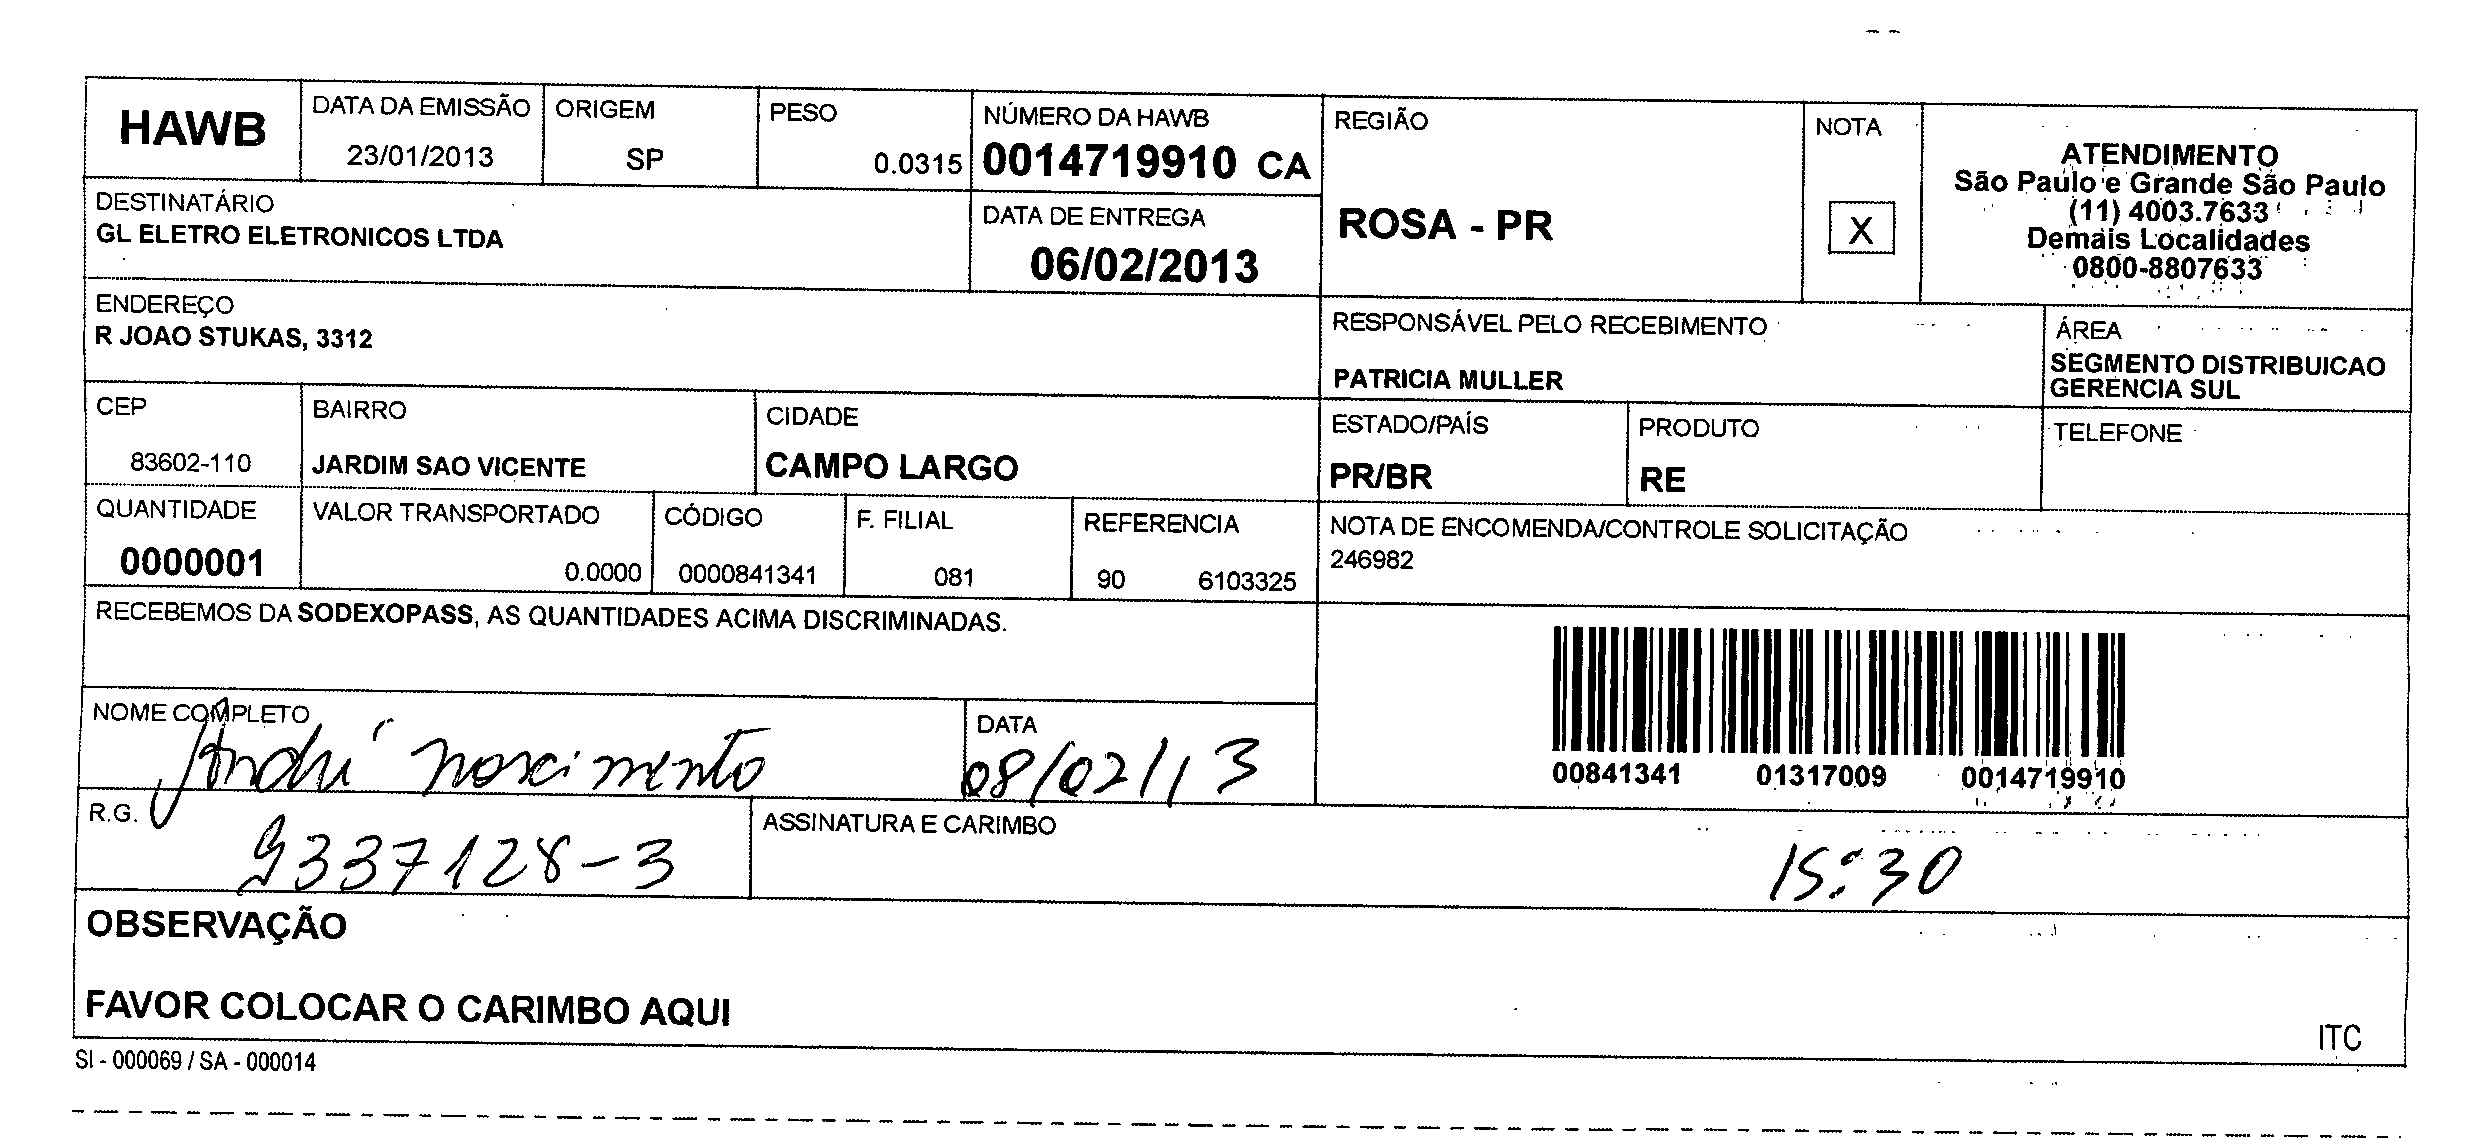 HAWB
DATA DA EMISSÃO
23/01/2013
ORIGEM
SP
PESO
0.0315
NÚMERO DA HAWB
0014719910 CA
REGIÃO
ROSA - PR
NOTA
X
ATENDIMENTO
São Paulo e Grande São Paulo
(11) 4003.7633
Demais Localidades
0800-8807633
DESTINATÁRIO
GL ELETRO ELETRONICOS LTDA
DATA DE ENTREGA
06/02/2013
ENDEREÇO
R JOAO STUKAS, 3312
RESPONSÁVEL PELO RECEBIMENTO
PATRICIA MULLER
ÁREA
SEGMENTO DISTRIBUICAO
GERENCIA SUL
CEP
83602-110
BAIRRO
JARDIM SAO VICENTE
CIDADE
CAMPO LARGO
ESTADO/PAÍS
PR/BR
PRODUTO
RE
TELEFONE
QUANTIDADE
0000001
VALOR TRANSPORTADO
0.0000
CÓDIGO
0000841341
F. FILIAL
081
REFERENCIA
90 6103325
NOTA DE ENCOMENDA/CONTROLE SOLICITAÇÃO
246982
RECEBEMOS DA SODEXOPASS, AS QUANTIDADES ACIMA DISCRIMINADAS.
00841341 01317009 0014719910
NOME COMPLETO
André nascimento
DATA
08/02/13
R.G.
9337128-3
ASSINATURA E CARIMBO
15:30
OBSERVAÇÃO
FAVOR COLOCAR O CARIMBO AQUI
ITC
SI - 000069 / SA - 000014